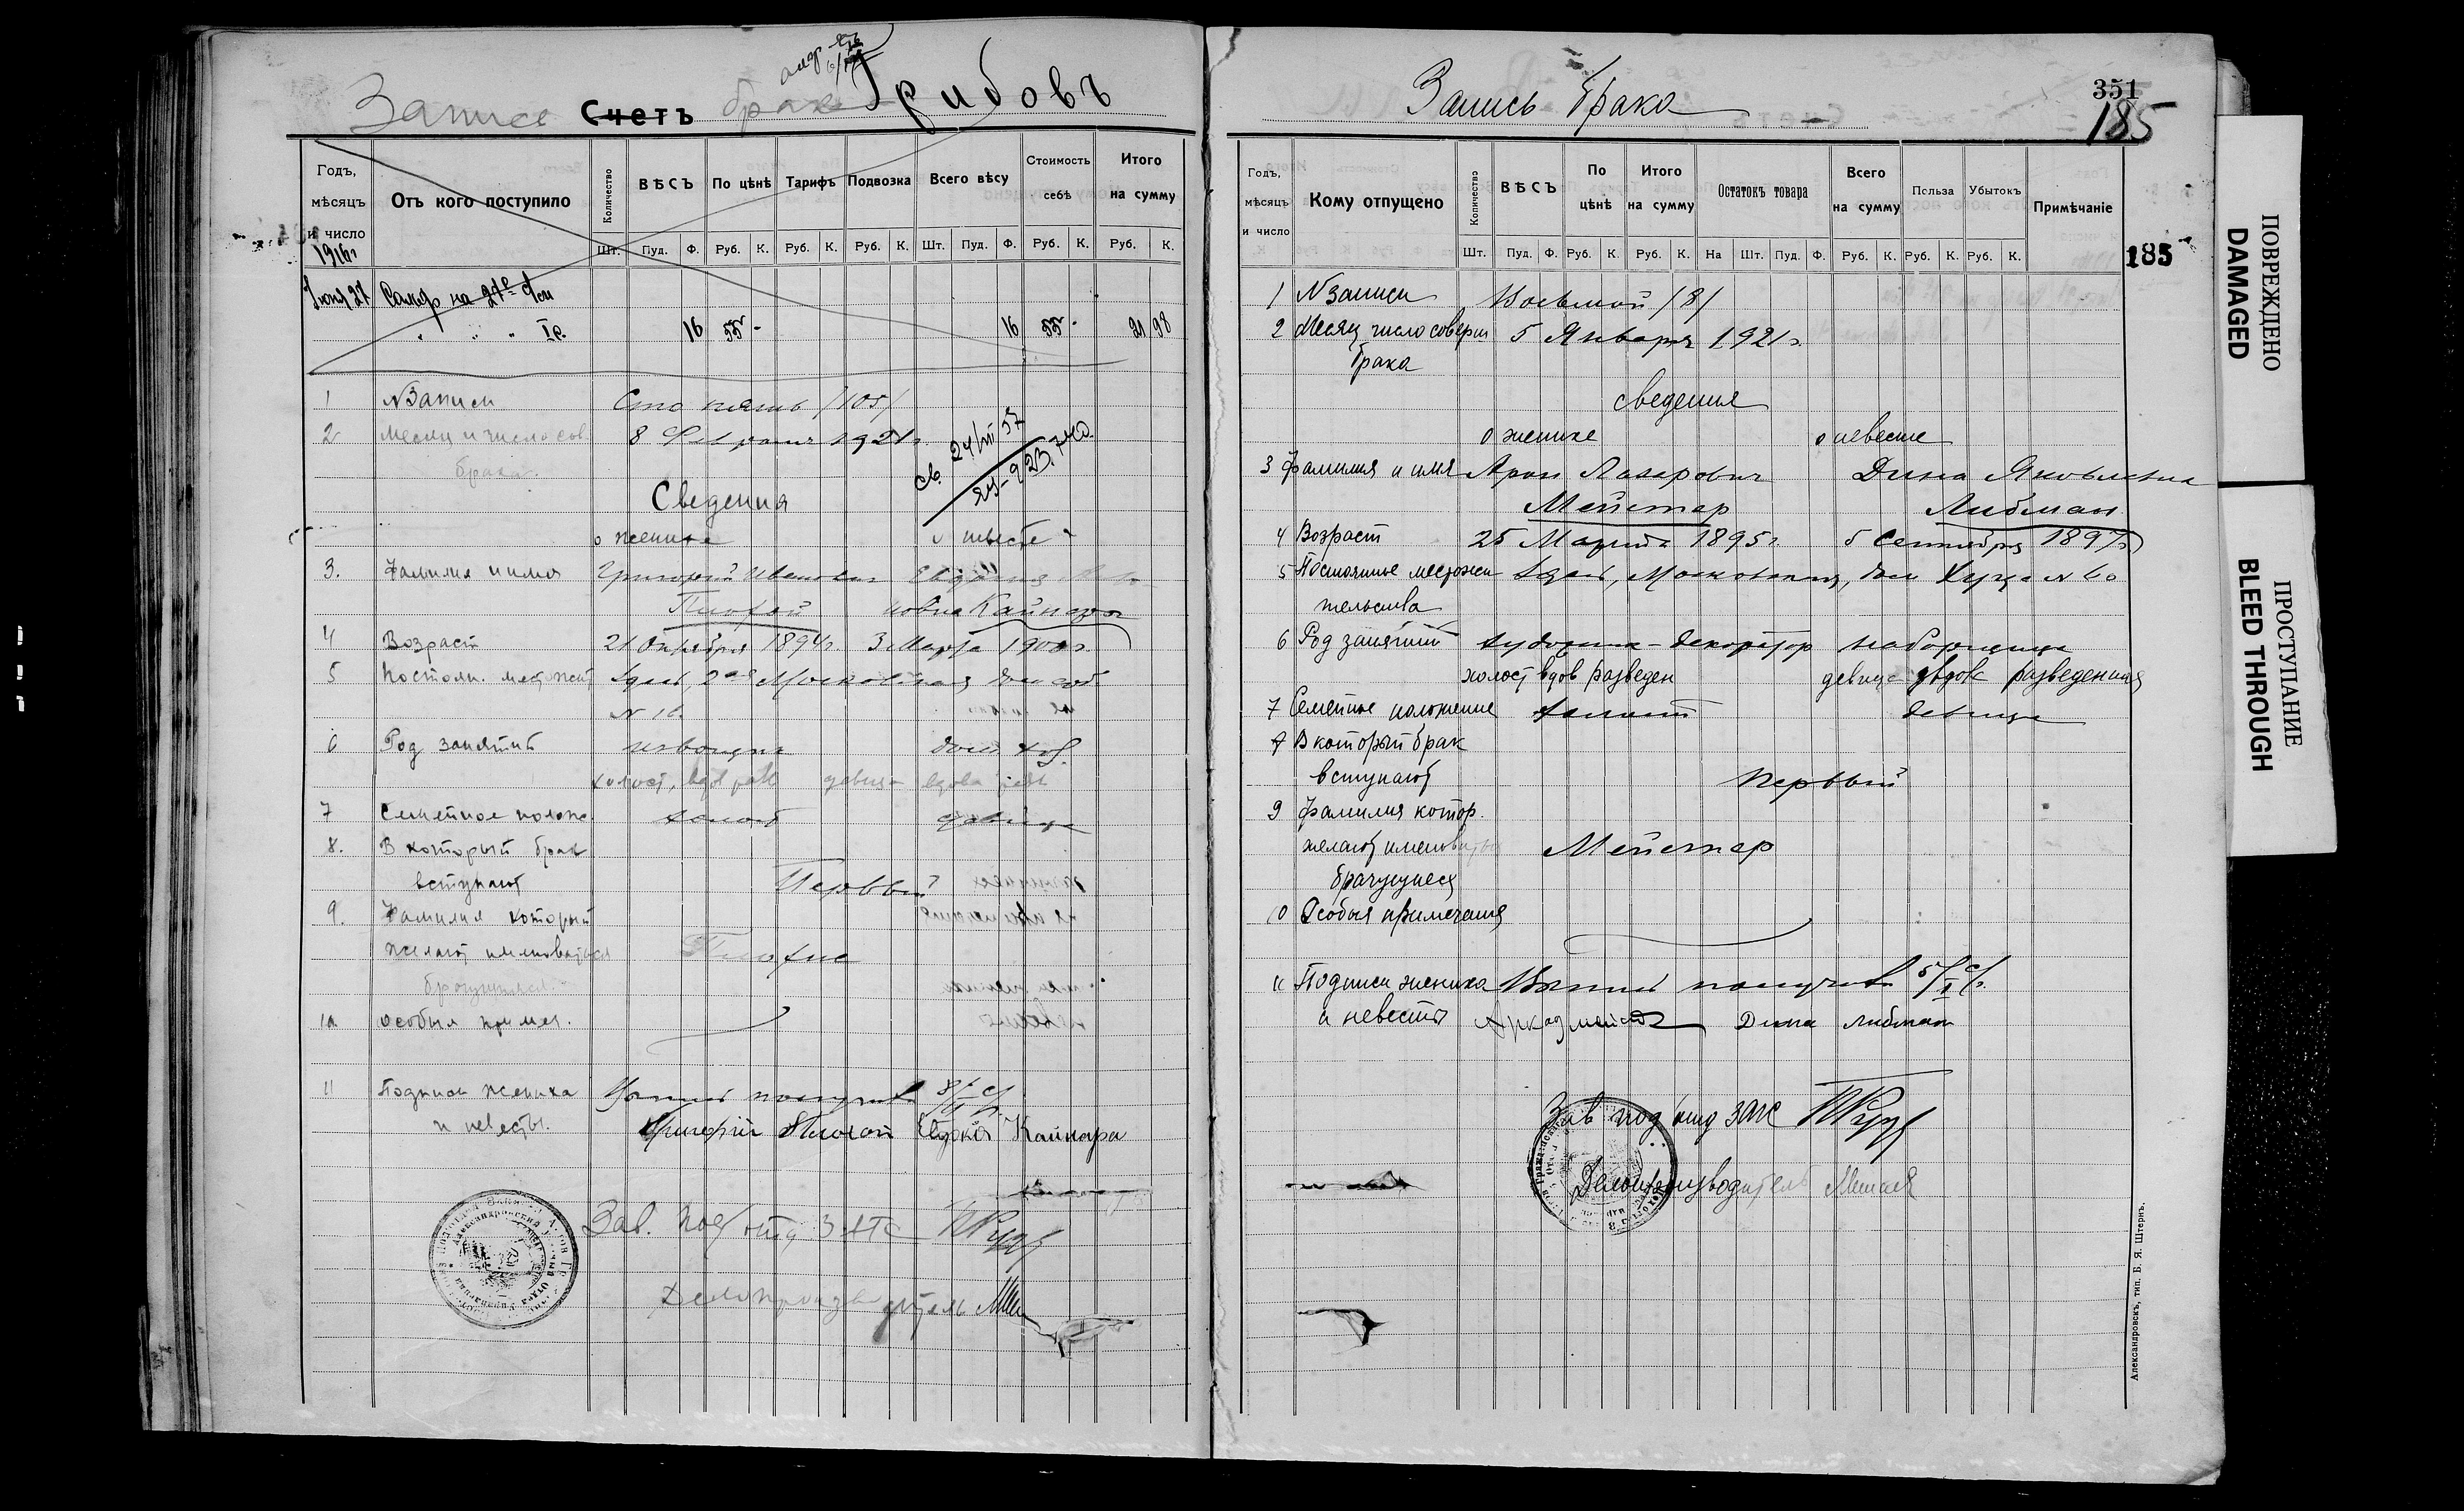 Запись Счетъ брака Грибовъ
Годъ, мѣсяцъ и число
Отъ кого поступило
Количество
ВѢСЪ
По цѣнѣ
Тарифъ
Подвозка
Всего вѣсу
Стоимость себѣ
Итого на сумму
Шт. Пуд. Ф. Руб. К. Руб. К. Руб. К. Шт. Пуд. Ф. Руб. К. Руб. К.
1916г
Июня 27
16 55 - 16 55 - 21 98
1 N Записи Сто пять /105/
2 Месяц и число сов. 8 Февраля 1921г.
брака.
св. 24/VII 57
ЯУ-923740
Сведения
о женихе о невесте
3. Фамилия и имя Григорий Иванович Евдокия
Плохой Кайнара
4 Возраст 21 Октября 1894г. 3 Марта 1900г.
5 Постоян. мест жит. здесь, 2ая Московская дом соб.
N 16.
6 Род занятий извощик дом. хоз.
холост, вдов разв девица вдова разв
7 Семейное полож. холост девица
8. В который брак
вступают Первый
9. Фамилия которой
желают именоваться Плохие
брачущиеся.
10 особыя примеч.
11 Подписи жениха
и невесты. Григорий Плохой Евдокия Кайнара
Зав. Под отд ЗАГС
Делопроизводитель
Запись Брака
351
185
Годъ, мѣсяцъ и число
Кому отпущено
Количество
ВѢСЪ
По цѣнѣ
Итого на сумму
Остатокъ товара
Всего на сумму
Польза
Убытокъ
Примѣчаніе
Шт. Пуд. Ф. Руб. К. Руб. К. На Шт. Пуд. Ф. Руб. К. Руб. К. Руб. К.
185
1 N записи Восьмой /8/
2 Месяц число соверш 5 Января 1921г.
брака
сведения
о женихе о невесте
3 Фамилия и имя Арон Лазарович Дина Яковлевна
Мейстер Либман
4 Возраст 25 Марта 1895г. 5 Сентября 1897г
5 Постоянное место жи здесь, Московская, дом N 60
тельства
6 Род занятий художник-декоратор наборщица
холост вдов разведен девица вдова разведенная
7 Семейное положение холост девица
В который брак
вступают первый
9 Фамилия котор.
желают именоваться Мейстер
брачущиеся
10 Особыя примечания
11 Подписи жениха
и невесты Аркад Мейстер Дина Либман
Зав под отд загс
Делопроизводитель
Александровскъ, тип. Б. Я. Штернъ.
ПОВРЕЖДЕНО
DAMAGED
ПРОСТУПАНИЕ
BLEED THROUGH